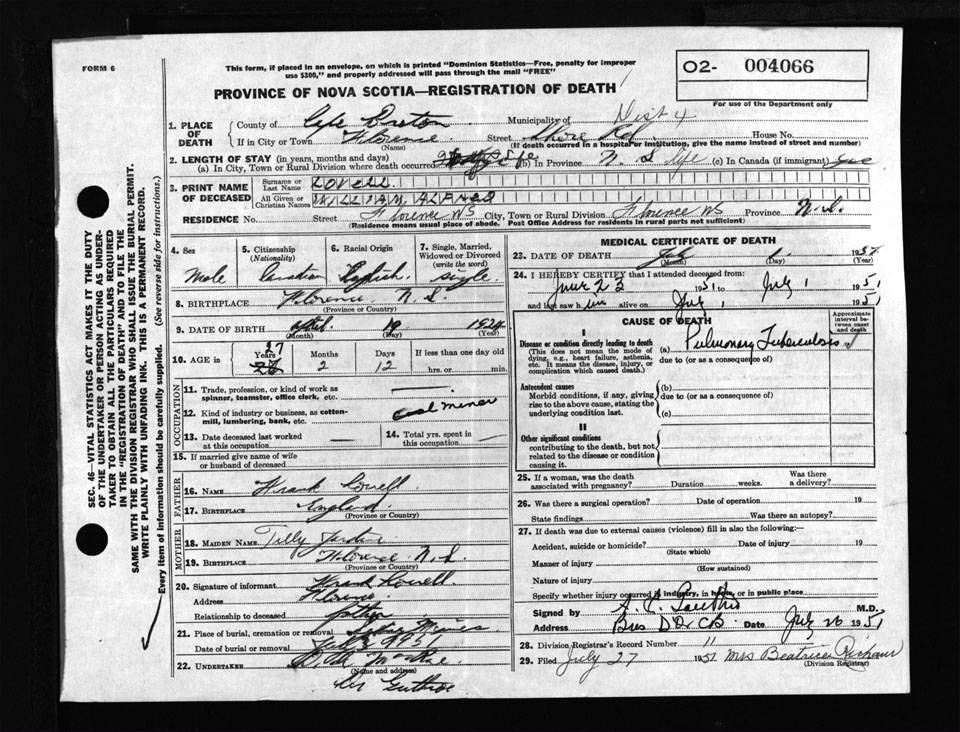 FORM 6
This form, if placed in an envelope, on which is printed "Dominion Statistics—Free, penalty for improper
use $300," and properly addressed will pass through the mail "FREE"
02- 004066
For use of the Department only
PROVINCE OF NOVA SCOTIA—REGISTRATION OF DEATH
1. PLACE OF DEATH
County of Cape Breton Municipality of Dist 4
If in City or Town Florence Street Shore Rd. House No.
(Name) (If death occurred in a hospital or institution, give the name instead of street and number)
2. LENGTH OF STAY (in years, months and days)
(a) In City, Town or Rural Division where death occurred (b) in Province N. S life (c) In Canada (if immigrant)
3. PRINT NAME OF DECEASED
Surname or Last Name LOVELL
All Given or Christian Names WILLIAM ALFRED
RESIDENCE No. Street Florence NS City, Town or Rural Division Florence NS Province N.S.
(Residence means usual place of abode. Post Office Address for residents in rural parts not sufficient)
4. Sex Male
5. Citizenship (Nationality) Canadian
6. Racial Origin English
7. Single, Married, Widowed or Divorced (write the word) single
8. BIRTHPLACE Florence N.S.
(Province or Country)
9. DATE OF BIRTH April 19 1924
(Month) (Day) (Year)
10. AGE in Years 27 Months 2 Days 12 If less than one day old hrs. or min.
OCCUPATION
11. Trade, profession, or kind of work as
spinner, teamster, office clerk, etc.
12. Kind of industry or business, as cotton-
mill, lumbering, bank, etc. Coal miner
13. Date deceased last worked
at this occupation
14. Total yrs. spent in
this occupation
15. If married give name of wife
or husband of deceased
FATHER
16. NAME Frank Lovell
17. BIRTHPLACE England
(Province or Country)
MOTHER
18. MAIDEN NAME Tilly
19. BIRTHPLACE Florence N.S.
(Province or Country)
20. Signature of informant Frank Lovell
Address Florence
Relationship to deceased father
21. Place of burial, cremation or removal Sydney Mines
Date of burial or removal July 3 1951
22. UNDERTAKER
(Name and address)
MEDICAL CERTIFICATE OF DEATH
23. DATE OF DEATH July 1 1951
(Month) (Day) (Year)
24. I HEREBY CERTIFY that I attended deceased from
June 23 1951 to July 1 1951
and last saw him alive on July 1 1951
CAUSE OF DEATH
Approximate interval between onset and death
I
Disease or condition directly leading to death
(This does not mean the mode of
dying, e.g., heart failure, asthenia,
etc. It means the disease, injury, or
complication which caused death.)
(a) Pulmonary Tuberculosis
due to (or as a consequence of)
Antecedent causes
Morbid conditions, if any, giving
rise to the above cause, stating the
underlying condition last.
(b)
due to (or as a consequence of)
(c)
II
Other significant conditions
contributing to the death, but not
related to the disease or condition
causing it.
25. If a woman, was the death
associated with pregnancy? Duration weeks. Was there a delivery?
26. Was there a surgical operation? Date of operation 19
State findings Was there an autopsy?
27. If death was due to external causes (violence) fill in also the following:—
Accident, suicide or homicide? Date of injury 19
(State which)
Manner of injury
(How sustained)
Nature of injury
Specify whether injury occurred in industry, in home, or in public place
Signed by M.D.
Address Bras D'Or CB. Date July 26 1951
28. Division Registrar's Record Number 11
29. Filed July 27 1951 Mrs Beatrice
(Division Registrar)
SEC. 46—VITAL STATISTICS ACT MAKES IT THE DUTY
OF THE UNDERTAKER OR PERSON ACTING AS UNDER-
TAKER TO OBTAIN ALL THE PARTICULARS REQUIRED
IN THE "REGISTRATION OF DEATH" AND TO FILE THE
SAME WITH THE DIVISION REGISTRAR WHO SHALL ISSUE THE BURIAL PERMIT.
WRITE PLAINLY WITH UNFADING INK. THIS IS A PERMANENT RECORD.
Every item of information should be carefully supplied. (See reverse side for instructions.)